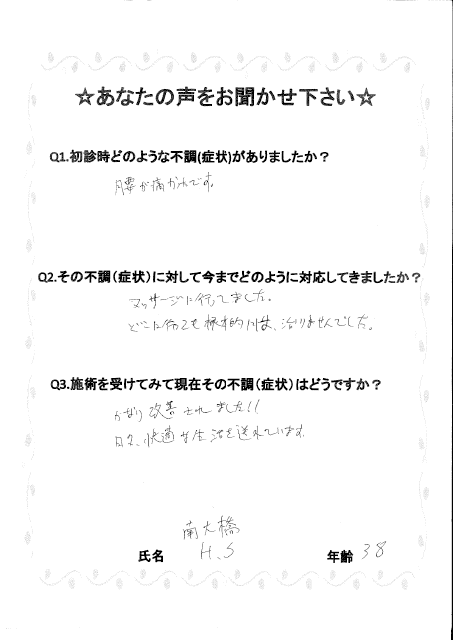 ☆あなたの声をお聞かせ下さい☆
Q1.初診時どのような不調(症状)がありましたか？
腰が痛かったです。
Q2.その不調（症状）に対して今までどのように対応してきましたか？
マッサージに行ってました。
どこに行っても根本的には、治りませんでした。
Q3.施術を受けてみて現在その不調（症状）はどうですか？
かなり改善されました!!
日々、快適な生活を送れています。
南大橋
氏名 H.S 年齢 38